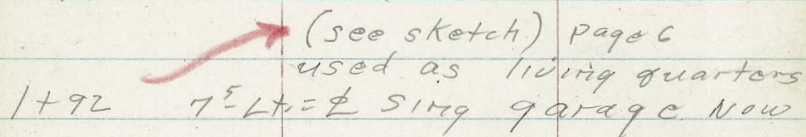 (see sketch) page 6
used as living quarters
1+92 7⁵ Lt. = ℄ Sing garage Now